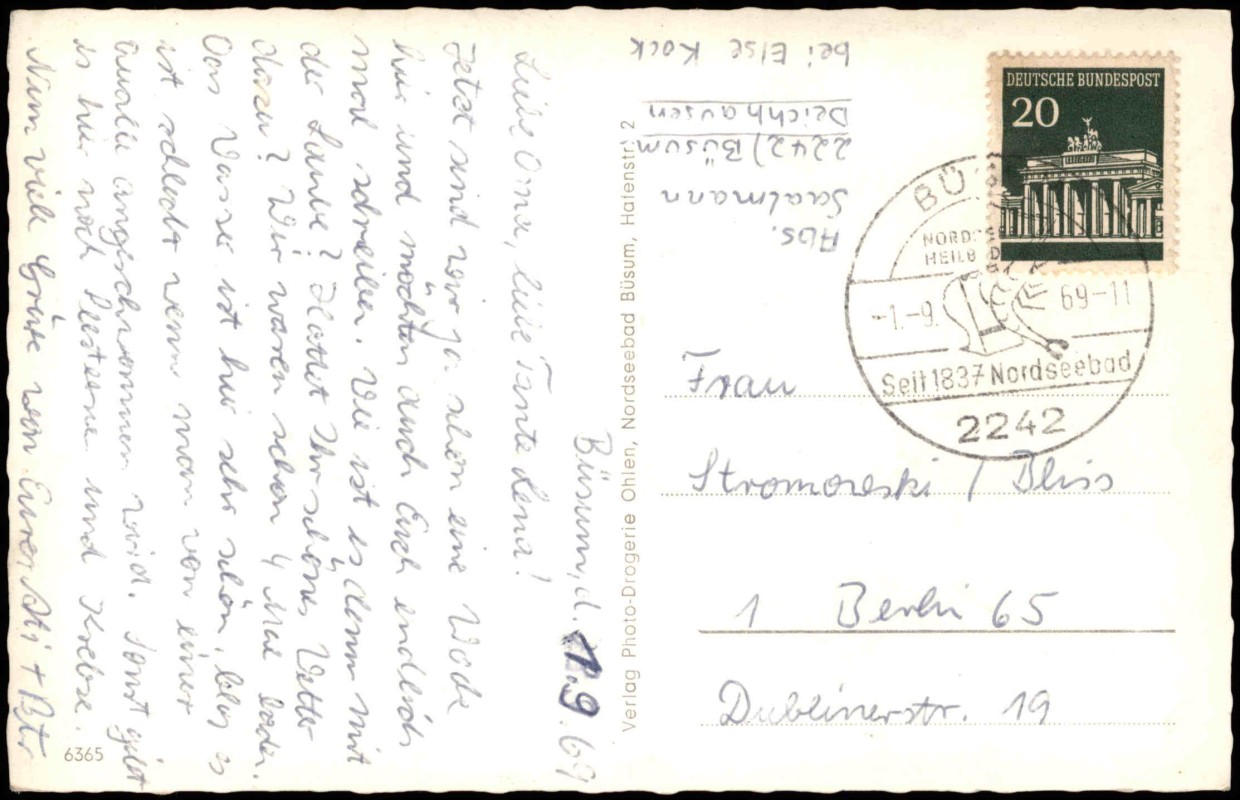 Büsum, d. 1.9.69
Liebe Oma, liebe Tante Lena!
Jetzt sind wir ja schon eine Woche
hier und möchten auch Euch endlich
mal schreiben. Wie ist es denn mit
der Laube? Hattet Ihr schönes Wetter
dazu? Wir waren schon 4 Mal baden.
Das Wasser ist hier sehr schön, blos es
ist schlecht wenn man von einer
Qualle angeschwommen wird. Sonst gibt
es hier noch Seesterne und Krebse.
Nun viele Grüße von Euren
6365
Verlag Photo-Drogerie Ohlen, Nordseebad Büsum, Hafenstr. 2
Abs.
Saalmann
2242) Büsum
Deichhausen
bei Else Kock
DEUTSCHE BUNDESPOST
20
BÜ
NORDSE
HEILB D
-1.-9. 69-11
Seit 1837 Nordseebad
2242
Frau
Stromowski / Bliss
1 Berlin 65
Dublinerstr. 19